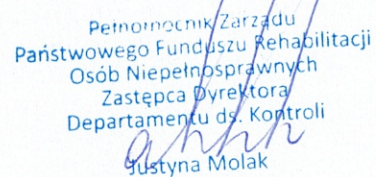 Pełnomocnik Zarządu
Państwowego Funduszu Rehabilitacji
Osób Niepełnosprawnych
Zastępca Dyrektora
Departamentu ds. Kontroli
Justyna Molak